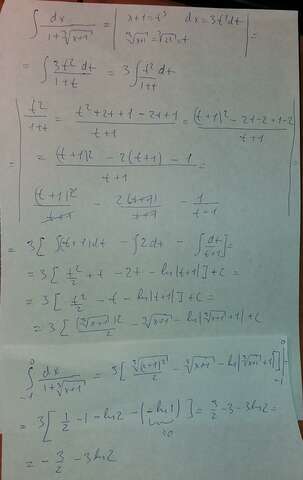 ∫ dx / (1+∛(x+1)) = | x+1=t³ dx=3t²dt |
| ∛(x+1) = ∛(t³) = t | =
= ∫ 3t² dt / (1+t) = 3∫ t² / (1+t) dt
| t²/(1+t) = (t²+2t+1-2t+1)/(t+1) = ((t+1)²-2t-2+1-2)/(t+1)
= ((t+1)² - 2(t+1) - 1)/(t+1) =
(t+1)²/(t+1) - 2(t+1)/(t+1) - 1/(t-1) |
= 3[ ∫(t+1)dt - ∫2dt - ∫ dt/(t+1) ] =
= 3[ t²/2 + t - 2t - ln|t+1| ] + C =
= 3[ t²/2 - t - ln|t+1| ] + C =
= 3[ (∛(x+1))²/2 - ∛(x+1) - ln|∛(x+1) + 1| ] + C
∫₋₁⁰ dx / (1+∛(x+1)) = 3[ ∛((x+1)²)/2 - ∛(x+1) - ln|∛(x+1) + 1| ] |₋₁⁰ =
= 3[ 1/2 - 1 - ln2 - (-ln1) ] = 3/2 - 3 - 3ln2 =
=0
= - 3/2 - 3ln2